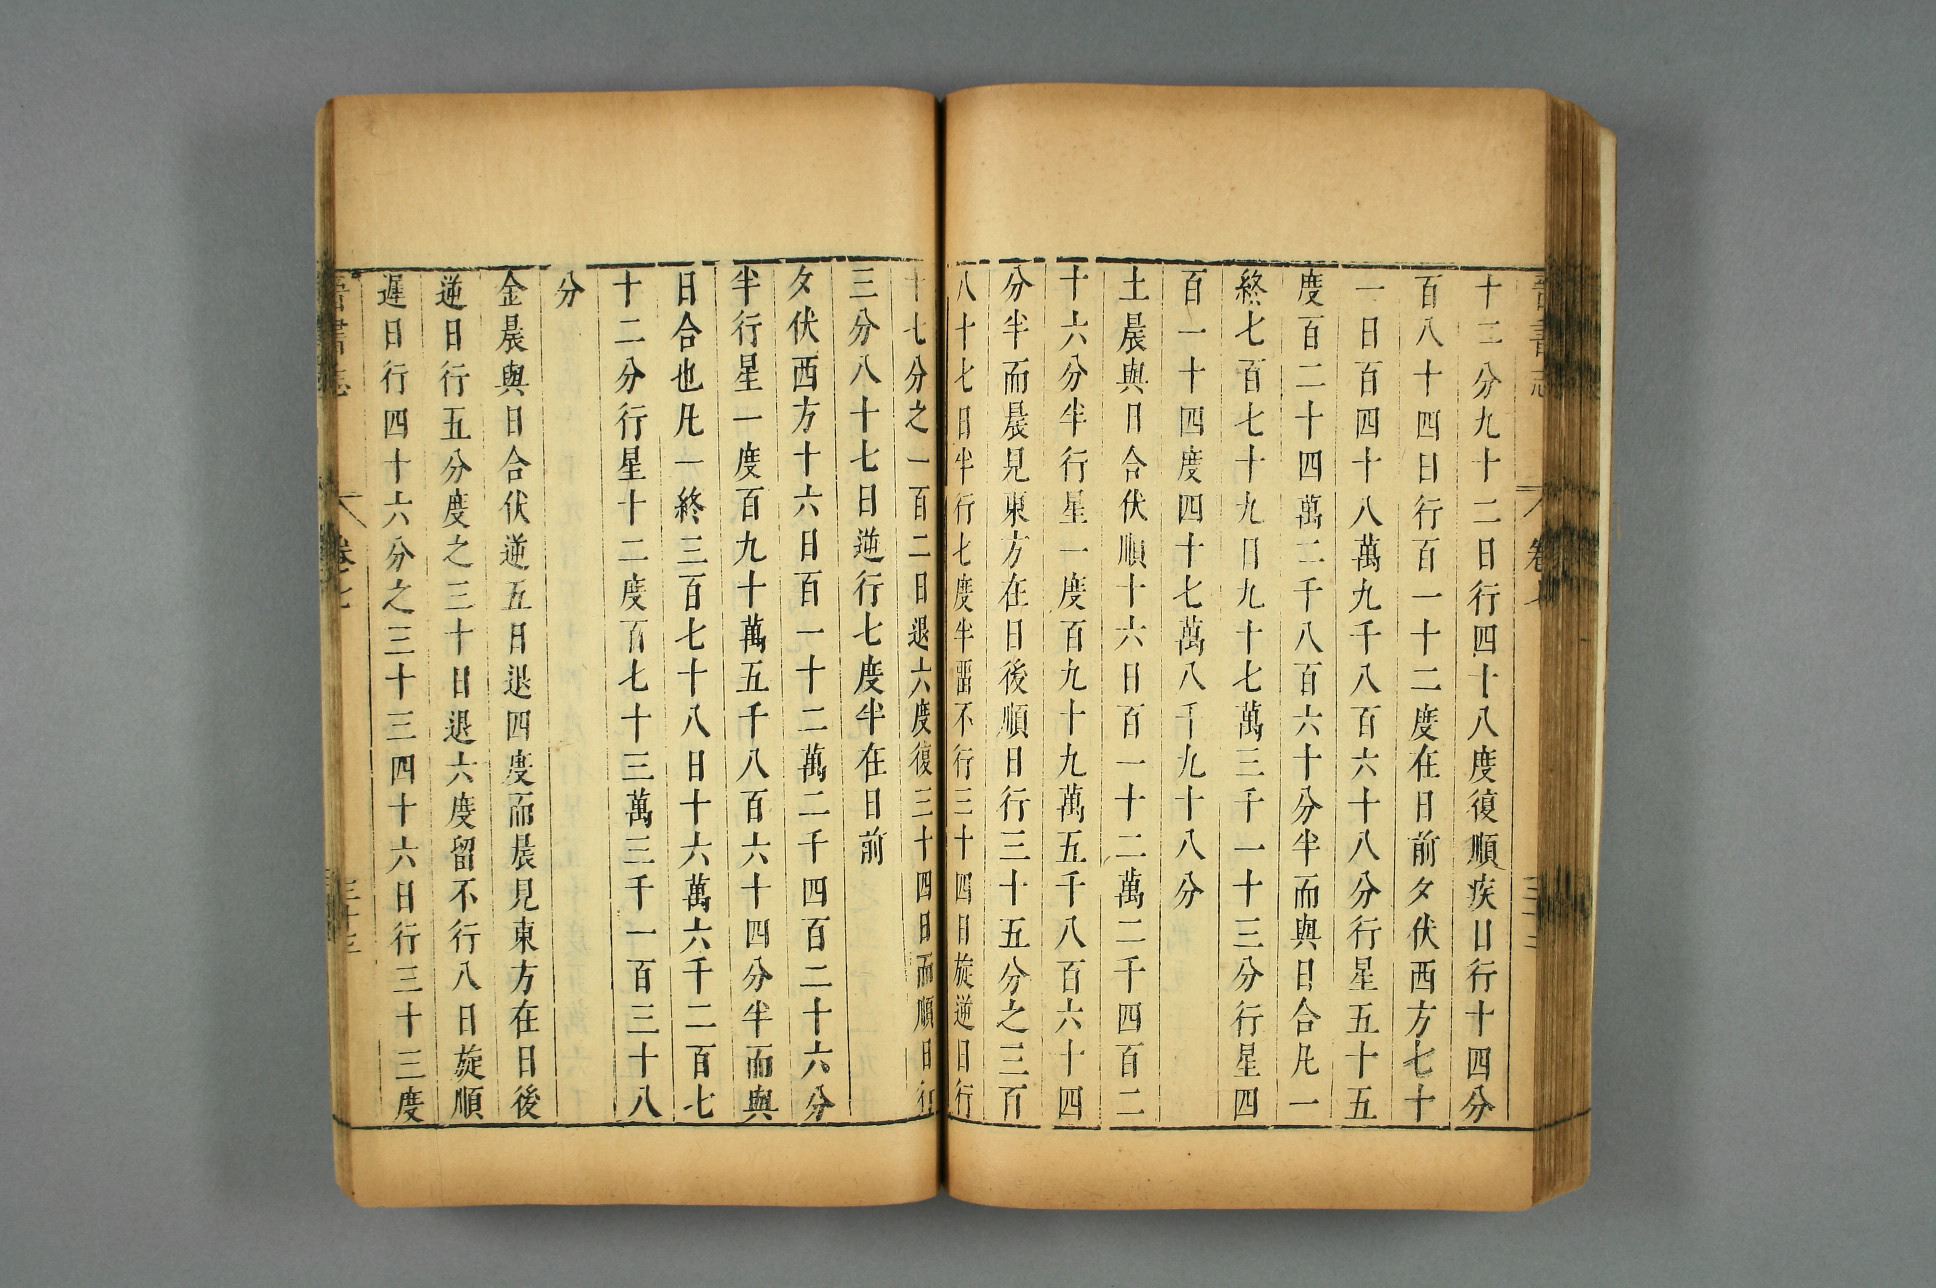 晉書志
卷七
十二分九十二日行四十八度復順疾日行十四分
百八十四日行百一十二度在日前夕伏西方七十
一日百四十八萬九千八百六十八分行星五十五
度百二十四萬二千八百六十分半而與日合凡一
終七百七十九日九十七萬三千一十三分行星四
百一十四度四十七萬八千九十八分
土晨與日合伏順十六日百一十二萬二千四百二
十六分半行星一度百九十九萬五千八百六十四
分半而晨見東方在日後順日行三十五分之三百
八十七日半行七度半畱不行三十四日旋逆日行
十七分之一百二日退六度復三十四日而順日行
三分八十七日逆行七度半在日前
夕伏西方十六日百一十二萬二千四百二十六分
半行星一度百九十萬五千八百六十四分半而與
日合也凡一終三百七十八日十六萬六千二百七
十二分行星十二度百七十三萬三千一百三十八
分
金晨與日合伏逆五日退四度而晨見東方在日後
逆日行五分度之三十日退六度留不行八日旋順
遲日行四十六分之三十三四十六日行三十三度
書志
卷七
三十三